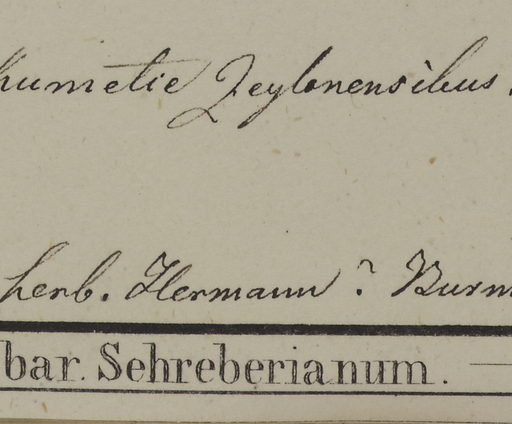 humetie Zeylonensibus.
herb. Hermann? Burm
bar. Sehreberianum.